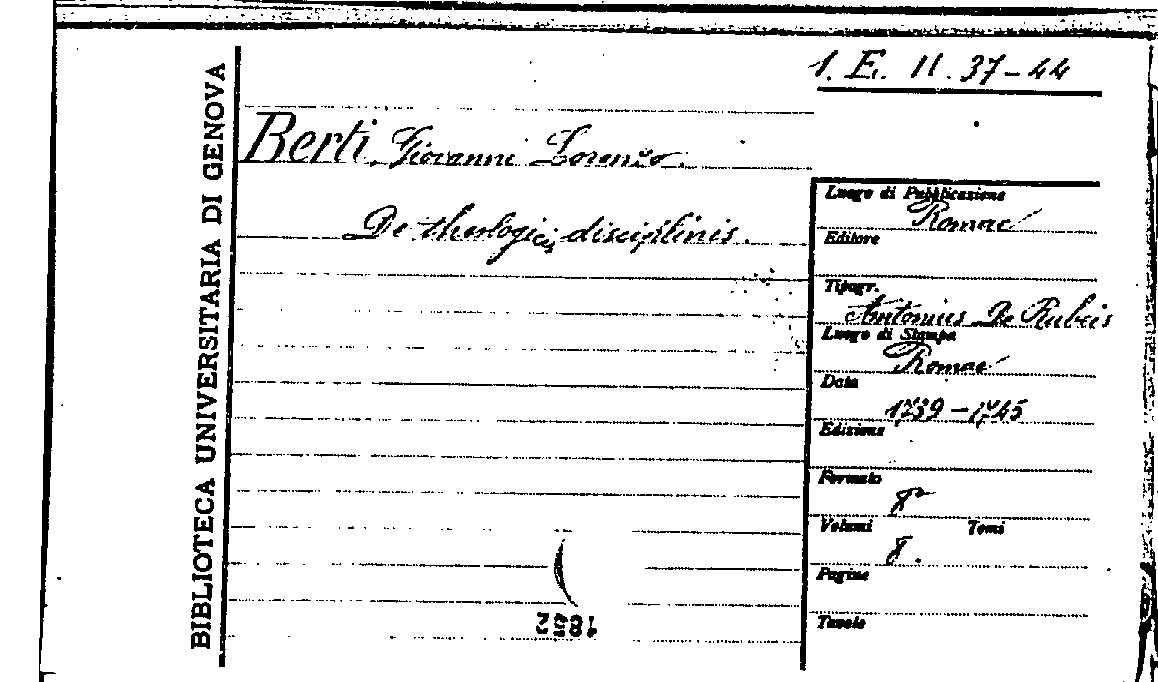 1. E. II. 37-44
BIBLIOTECA UNIVERSITARIA DI GENOVA
Berti Giovanni Lorenzo.
De theologicis disciplinis.
Luogo di Pubblicazione
Romae
Editore
Tipogr.
Antonius De Rubeis
Luogo di Stampa
Romae
Data
1739-1745
Edizione
Formato
8º
Volumi Tomi
8.
Pagine
Tavole